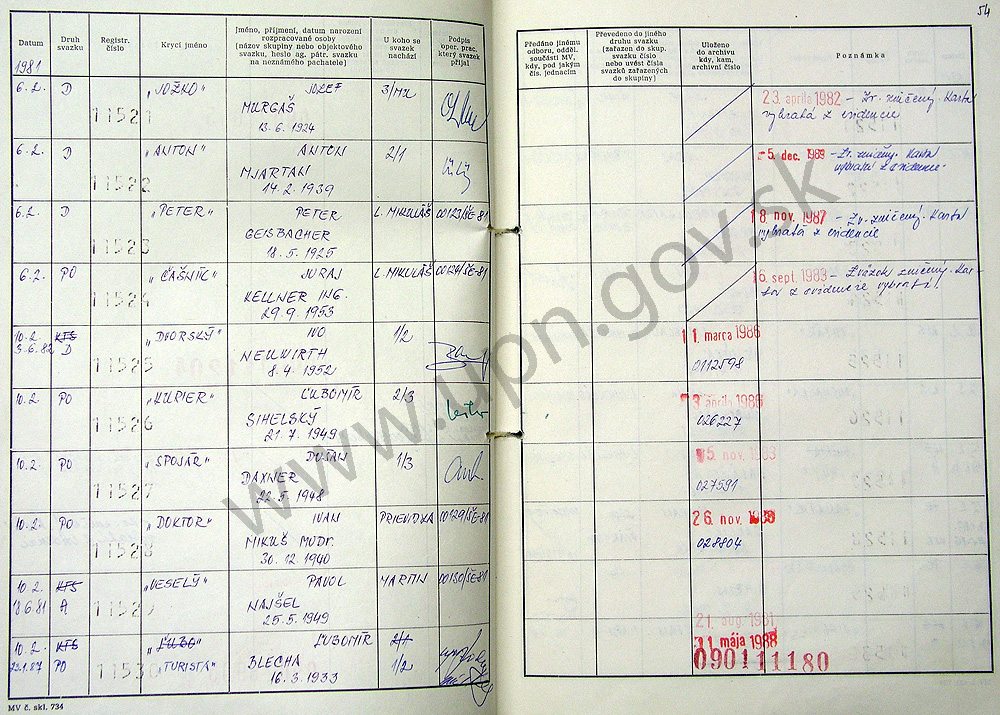 54
Datum
Druh svazku
Registr. číslo
Krycí jméno
Jméno, příjmení, datum narození
rozpracované osoby
(název skupiny nebo objektového
svazku, heslo ag. pátr. svazku
na neznámého pachatele)
U koho se
svazek
nachází
Podpis
oper. prac.
který svazek
přijal
Předáno jinému
odboru, odděl.
součásti MV,
kdy, pod jakým
čís. jednacím
Převedeno do jiného
druhu svazku
(zařazen do skup.
svazku číslo
nebo uvést čísla
svazků zařazených
do skupiny)
Uloženo
do archivu
kdy, kam,
archivní číslo
Poznámka
1981
6.2. D 11521 „JOŽKO" JOZEF 3/
MURGAŠ
13.6.1924
23. apríla 1982 – Zv. zničený. Karta
vybratá z evidencie
6.2. D 11522 „ANTON" ANTON 2/1
MJARTAN
14.2.1939
5. dec. 1989 – Zv. zničený. Karta
vybratá z evidencie
6.2. D 11523 „PETER" PETER L. MIKULÁŠ 00123/ŠE-81
GEISBACHER
18.5.1925
18. nov. 1987 – Zv. zničený. Karta
vybratá z evidencie
6.2. PO 11524 „ČAŠNÍK" JURAJ L. MIKULÁŠ 00124/ŠE-81
KELLNER ING.
29.9.1953
16. sept. 1983 – Zväzok zničený. Kar-
tov z evidencie vybratí.
10.2. KTS „DVORSKÝ" IVO 1/2
3.6.82 D 11525 NEUWIRTH
8.4.1952
11. marca 1986
0112598
10.2. PO 11526 „KURIER" ĽUBOMÍR 2/3
SIHELSKÝ
21.7.1949
3. apríla 1986
026227
10.2. PO 11527 „SPOJÁR" DUŠAN 1/3
DAXNER
22.5.1948
15. nov. 1983
027591
10.2. PO 11528 „DOKTOR" IVAN PRIEVIDZA 00129/ŠE-81
MIKUŠ MUDr.
30.12.1940
26. nov.
028804
10.2. KTS „VESELÝ" PAVOL MARTIN 00130/ŠE-81
18.6.81 A 11529 NAJŠEL
25.5.1949
21. aug. 1981
10.2. KTS „ĽUBO" ĽUBOMÍR 2/1
PO 11530 „TURISTA" BLECHA 1/2
16.3.1933
11. mája 1988
090111180
MV č. skl. 734
www.upn.gov.sk